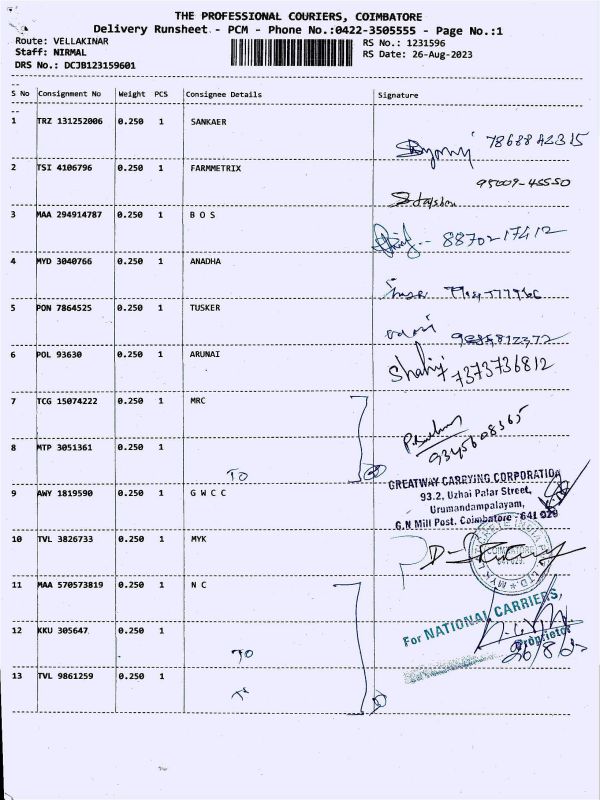 THE PROFESSIONAL COURIERS, COIMBATORE
Delivery Runsheet - PCM - Phone No.:0422-3505555 - Page No.:1
Route: VELLAKINAR
RS No.: 1231596
Staff: NIRMAL
RS Date: 26-Aug-2023
DRS No.: DCJB123159601
S No Consignment No Weight PCS Consignee Details Signature
1 TRZ 131252006 0.250 1 SANKAER
2 TSI 4106796 0.250 1 FARMMETRIX
95009-45550
3 MAA 294914787 0.250 1 B O S
88702 17412
4 MYD 3040766 0.250 1 ANADHA
5 PON 7864525 0.250 1 TUSKER
6 POL 93630 0.250 1 ARUNAI
7373736812
7 TCG 15074222 0.250 1 MRC
9345608365
8 MTP 3051361 0.250 1
TO
GREATWAY CARRYING CORPORATION
93.2, Uzhai Palar Street,
Urumandampalayam,
G.N Mill Post. Coimbatore - 641 029
9 AWY 1819590 0.250 1 G W C C
10 TVL 3826733 0.250 1 MYK
11 MAA 570573819 0.250 1 N C
For NATIONAL CARRIERS,
Proprietor
26/8/23
12 KKU 305647 0.250 1
TO
13 TVL 9861259 0.250 1